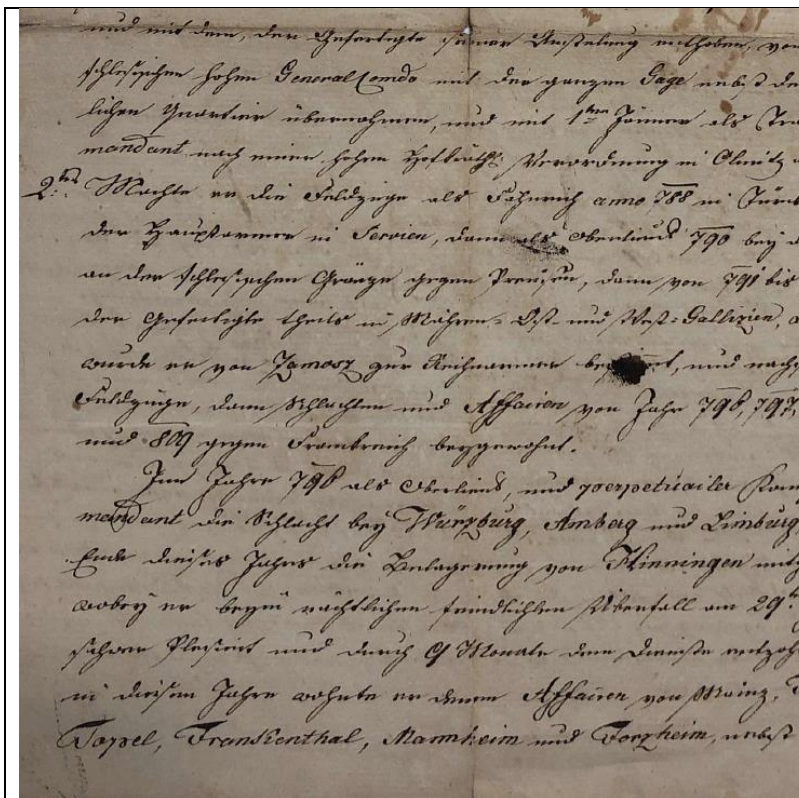 und mit dem, der Gefertigte seiner Anstelung enthoben, vom
schlesischen hohen General Comdo mit der ganzen Gage nebst de
lichen Quartier übernohmen, und mit 1ten Jänner als Tra
mandant nach einer hohen Hofkräthl: Verordnung in Olmitz
2tens Machte er die Feldzüge als Fähnrich anno 788 in Türk
der Hauptarmee in Servien, dann als Oberlieut 790 bey d
an der schlesischen Gränze gegen Preusen, dann von 791 bis
der Gefertigte theils in Mähren- Ost- und West-Gallizien,
wurde er von Zamosz zur Reichsarmee, und nach
Feldzüge, dann Schlachten und Affairen von Jahr 796, 797,
und 809 gegen Frankreich beygewohnt.
Im Jahre 796 als Oberlieut, und perpetuirler Kom
mandant die Schlacht bey Würzburg, Amberg und Limburg,
Ende dieses Jahrs die Belagerung von Hinningen mit
wobey er beym nächtlichen feindlichen Überfall am 29t
schwer Plesirt und durch 9 Monate dem Dienste entzoh
in diesem Jahre wohnte er denen Affairen von Mainz,
Toppel, Frankenthal, Mannheim und Forzheim, nebst